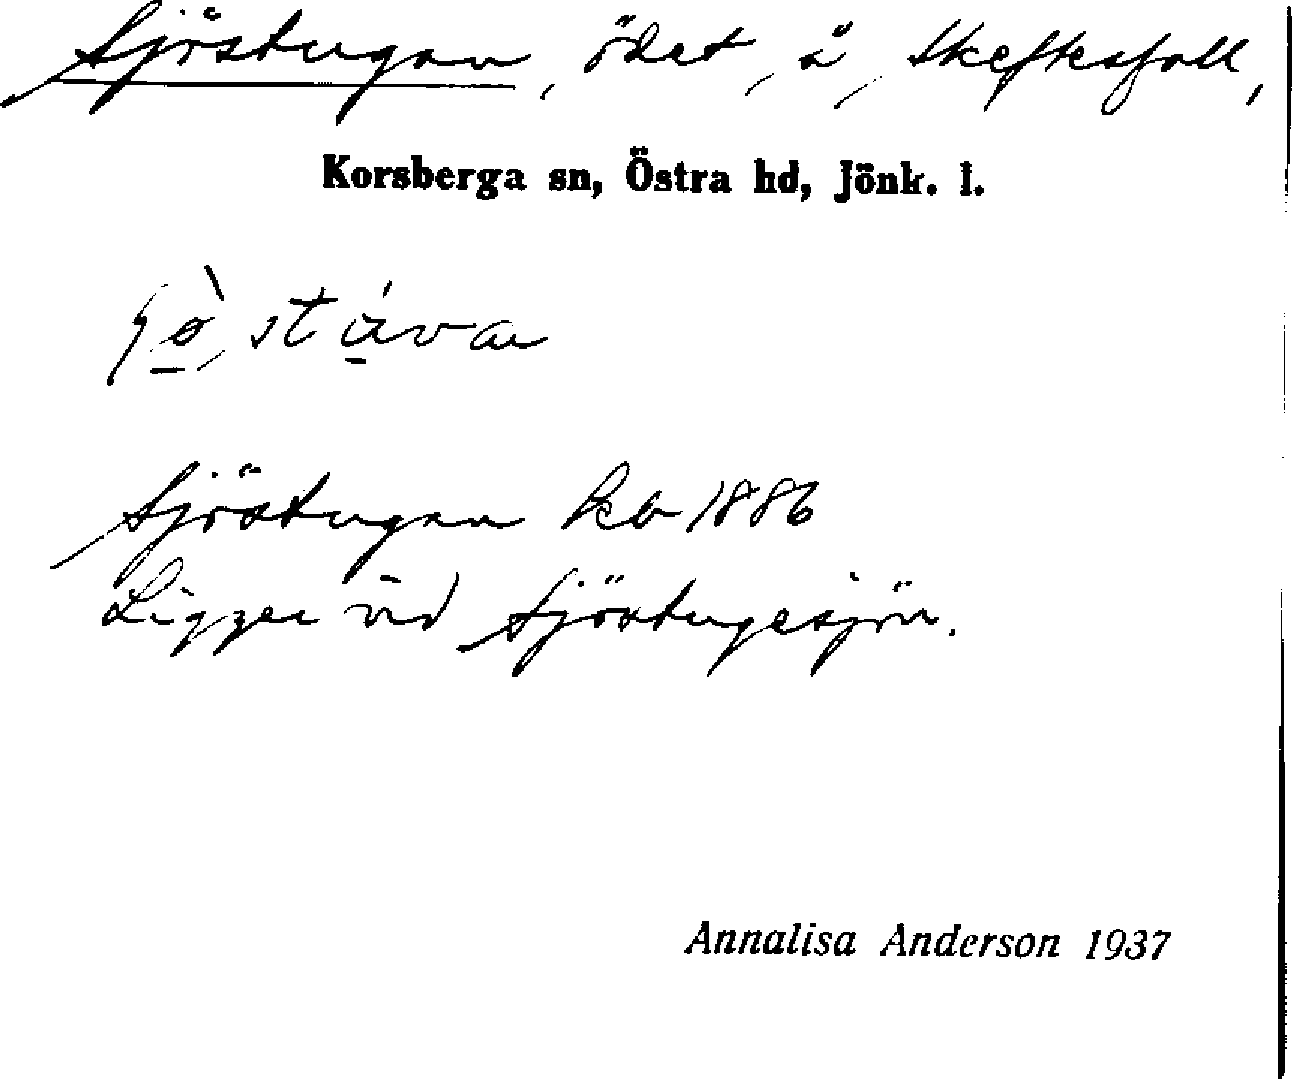 Sjöstugan, ödet, å Skeftesfall,
Korsberga sn, Östra hd, Jönk. l.
Sjöstugan kb 1886
Ligger vid Sjöstugesjön.
Annalisa Anderson 1937